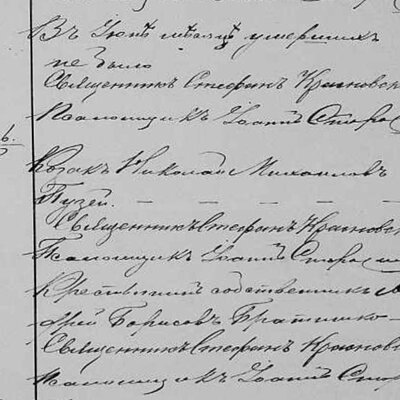 Въ Іюнѣ мѣсяцѣ умершихъ
не было
Священникъ Стефанъ Красновск
Псаломщикъ Іоаннъ Сторо
6.
Козакъ Николай Михаиловъ
Пузей.
Священникъ Стефанъ Красновск
Псаломщикъ Іоаннъ Сторо
Крестьянинъ собственникъ
дрей Борисовъ
Священникъ Стефанъ Красновск
Псаломщикъ Іоаннъ Сто